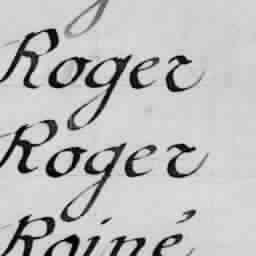 Roger
Roger
Roiné